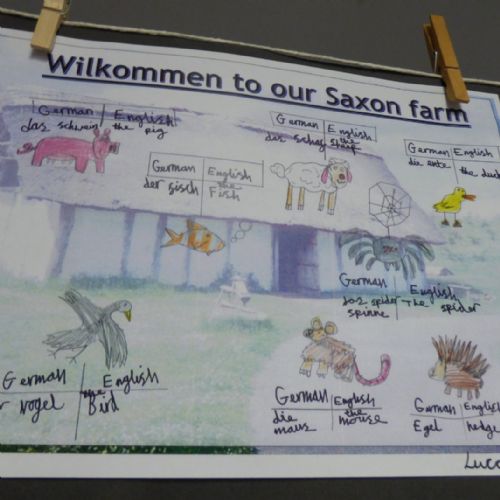 Wilkommen to our Saxon farm
German English
das schwein the pig
German English
das schaf the sheep
German English
die ente the duck
German English
der fisch the Fish
German English
das spider The spider
spinne
German English
vogel the Bird
German English
die maus the mouse
German English
Egel hedge
Luca